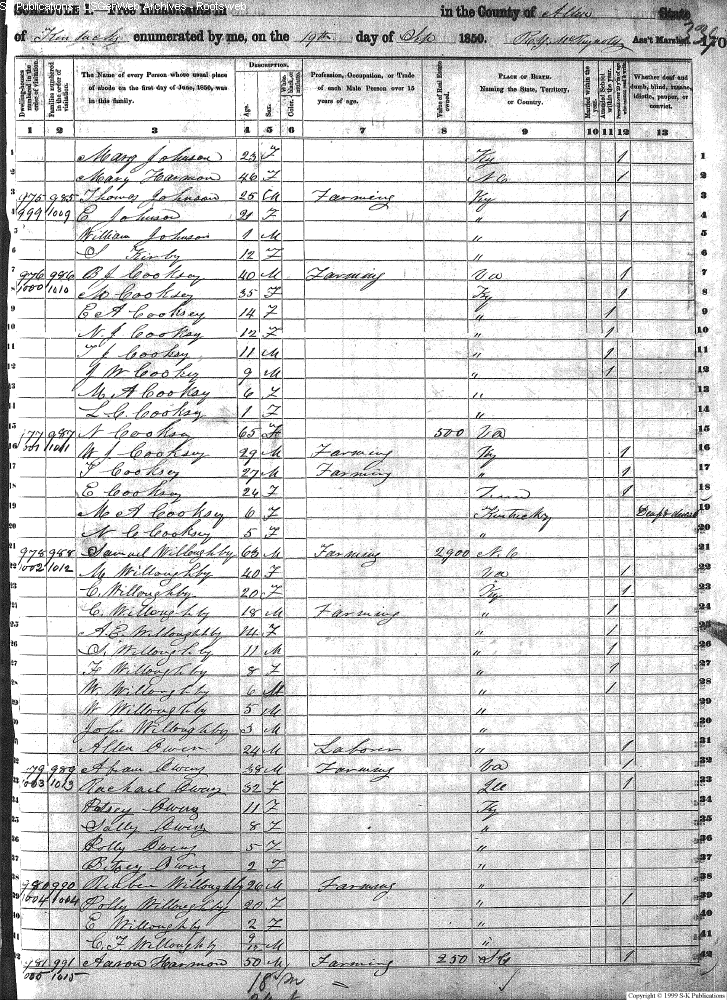 Publications - USGenWeb Archives - Rootsweb
SCHEDULE I. Free Inhabitants in in the County of Allen State
of Kentucky enumerated by me, on the 19th day of Sep 1850. Ass't Marshal
Dwelling-houses numbered in the order of visitation.
Families numbered in the order of visitation.
The Name of every Person whose usual place of abode on the first day of June, 1850, was in this family.
Description.
Age.
Sex.
Color
Profession, Occupation, or Trade of each Male Person over 15 years of age.
Value of Real Estate owned.
Place of Birth. Naming the State, Territory, or Country.
Married within the year.
Whether deaf and dumb, blind, insane, idiotic, pauper, or convict.
1 2 3 4 5 6 7 8 9 10 11 12 13
1 Mary Johnson 23 F Ky 1 1
2 Mary Harmon 46 F N C 1 2
3 975 985 Thomas Johnson 25 M Farming Ky 3
4 999 1009 E Johnson 21 F " 1 4
5 William Johnson 1 M " 5
6 S Kirby 12 F " 6
7 976 986 B J Cooksey 40 M Farming Va 1 7
8 1000 1010 M Cooksey 35 F Ky 1 8
9 E A Cooksey 14 F " 1 9
10 N J Cooksy 12 F " 1 10
11 T J Cooksy 11 M " 1 11
12 J W Cooksy 9 M " 1 12
13 M A Cooksy 6 F " 13
14 L C Cooksy 1 F " 14
15 977 987 N Cooksy 65 F 500 Va 15
16 1001 1011 W J Cooksey 29 M Farming Ky 1 16
17 T Cooksey 27 M Farming " 1 17
18 E Cooksy 24 F Tenn 1 18
19 M A Cooksy 6 F Kentucky 19
20 N C Cooksy 5 F " 20
21 978 988 Samuel Willoughby 63 M Farming 2900 N C 21
22 1002 1012 M Willoughby 40 F Va 1 22
23 C Willoughby 20 F Ky 1 23
24 C Willoughby 18 M Farming " 1 24
25 A E Willoughby 14 F " 1 25
26 S Willoughby 11 M " 1 26
27 F Willoughby 8 F " 1 27
28 W Willoughby 6 M " 1 28
29 W Willoughby 5 M " 29
30 John Willoughby 3 M " 30
31 Allen Owen 24 M Laborer " 1 31
32 979 989 Owen 38 M Farming Va 1 32
33 1003 1013 Rachael Owen 32 F 1 33
34 Patsey Owen 11 F Ky 34
35 Sally Owen 8 F " 35
36 Polly Owen 5 F " 36
37 Betsey Owen 2 F " 37
38 980 990 Reuben Willoughby 26 M Farming " 38
39 1004 1014 Polly Willoughby 20 F " 1 39
40 E Willoughby 2 F " 40
41 C F Willoughby 9/12 M " 41
42 981 991 Aaron Harmon 50 M Farming 250 1 42
1005 1015
18 m
Copyright © 1999 S-K Publications